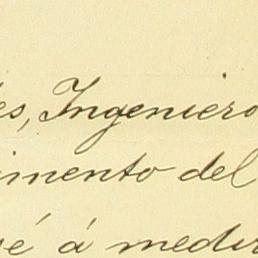 es, Ingeniero
imento del
sé á medir